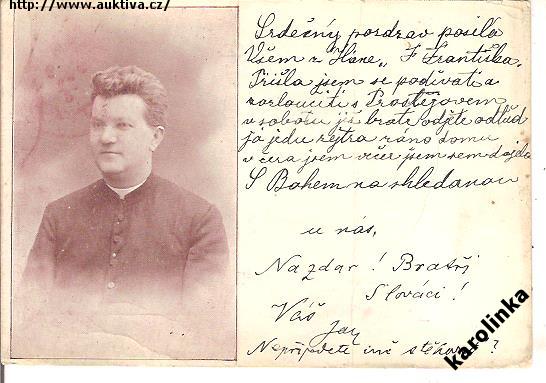 http://www.auktiva.cz/
Srdečný pozdrav posílá
Všem z Hané „ F Františka.
Přišla jsem se podívati a
rozloučiti s Prostějovem
v sobotu již bratr odjíte odtud
já jedu zejtra ráno domu
včera jsem večer jsem sem dojela
S Bohem na shledanou
u nás,
Na zdar! Bratři
Slováci!
Váš
Jan
Nepřijedete mě ?
karolinka